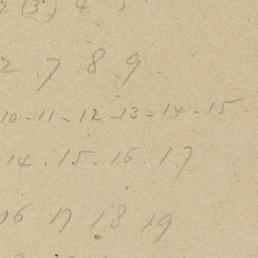 2 (3) 4 5
2 7 8 9
10-11-12-13-14-15
14.15.16.17
16 17 18 19